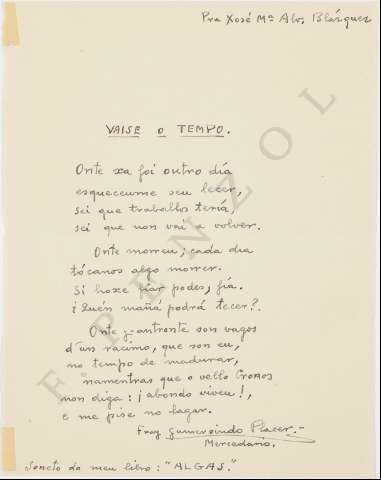 Pra Xosé Mª Alv. Blázquez
VAISE O TEMPO.
Onte xa foi outro día
esqueceume seu lecer,
sei que traballos tería,
sei que non vai a volver.
Onte morreu; cada dia
tócanos algo morrer.
Si hoxe fiar podes, fía.
¿Quén mañá podrá tecer?.
Onte y-antronte son vagos
d'un racimo, que son eu,
no tempo de madurar,
namentras que o vello Cronos
non diga: ¡abondo viveu!,
e me pise no lagar.
Fray Gumersindo Placer.-
Mercedario.
Soneto do meu libro: "ALGAS."
F. PENZOL